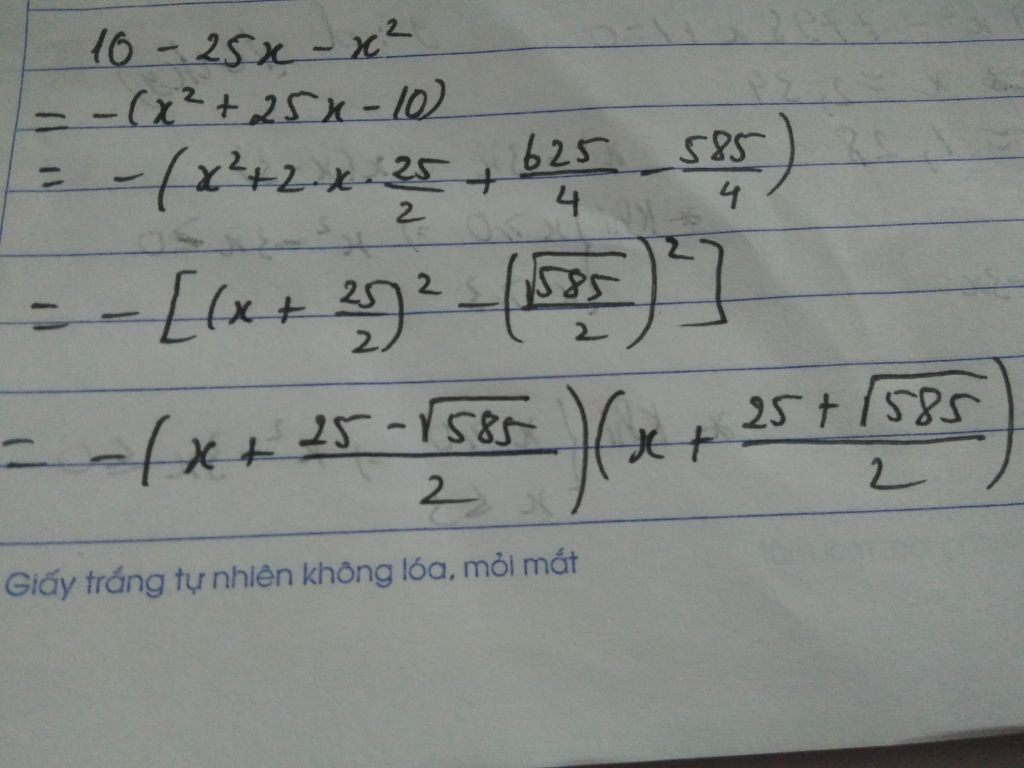 10 - 25x - x²
= -(x² + 25x - 10)
= -(x² + 2.x.25/2 + 625/4 - 585/4)
= -[(x + 25/2)² - (√585/2)²]
= -(x + (25 - √585)/2)(x + (25 + √585)/2)
Giấy trắng tự nhiên không lóa, mỏi mắt